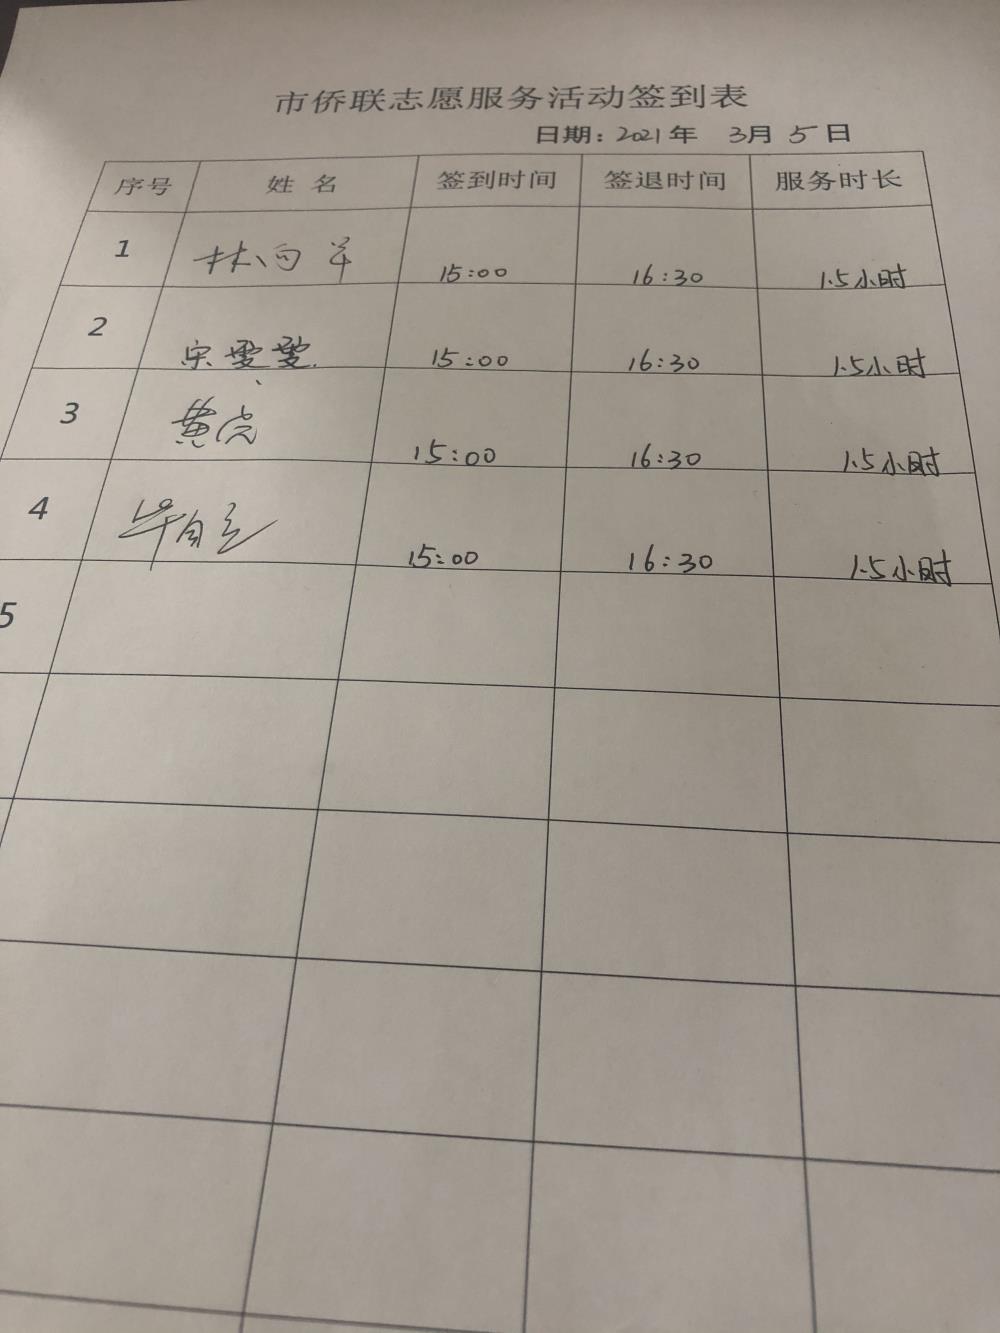 市侨联志愿服务活动签到表
日期: 2021年 3月 5日
序号 姓 名 签到时间 签退时间 服务时长
1 林向羊 15:00 16:30 1.5小时
2 宋雯雯 15:00 16:30 1.5小时
3 黄 15:00 16:30 1.5小时
4 15:00 16:30 1.5小时
5